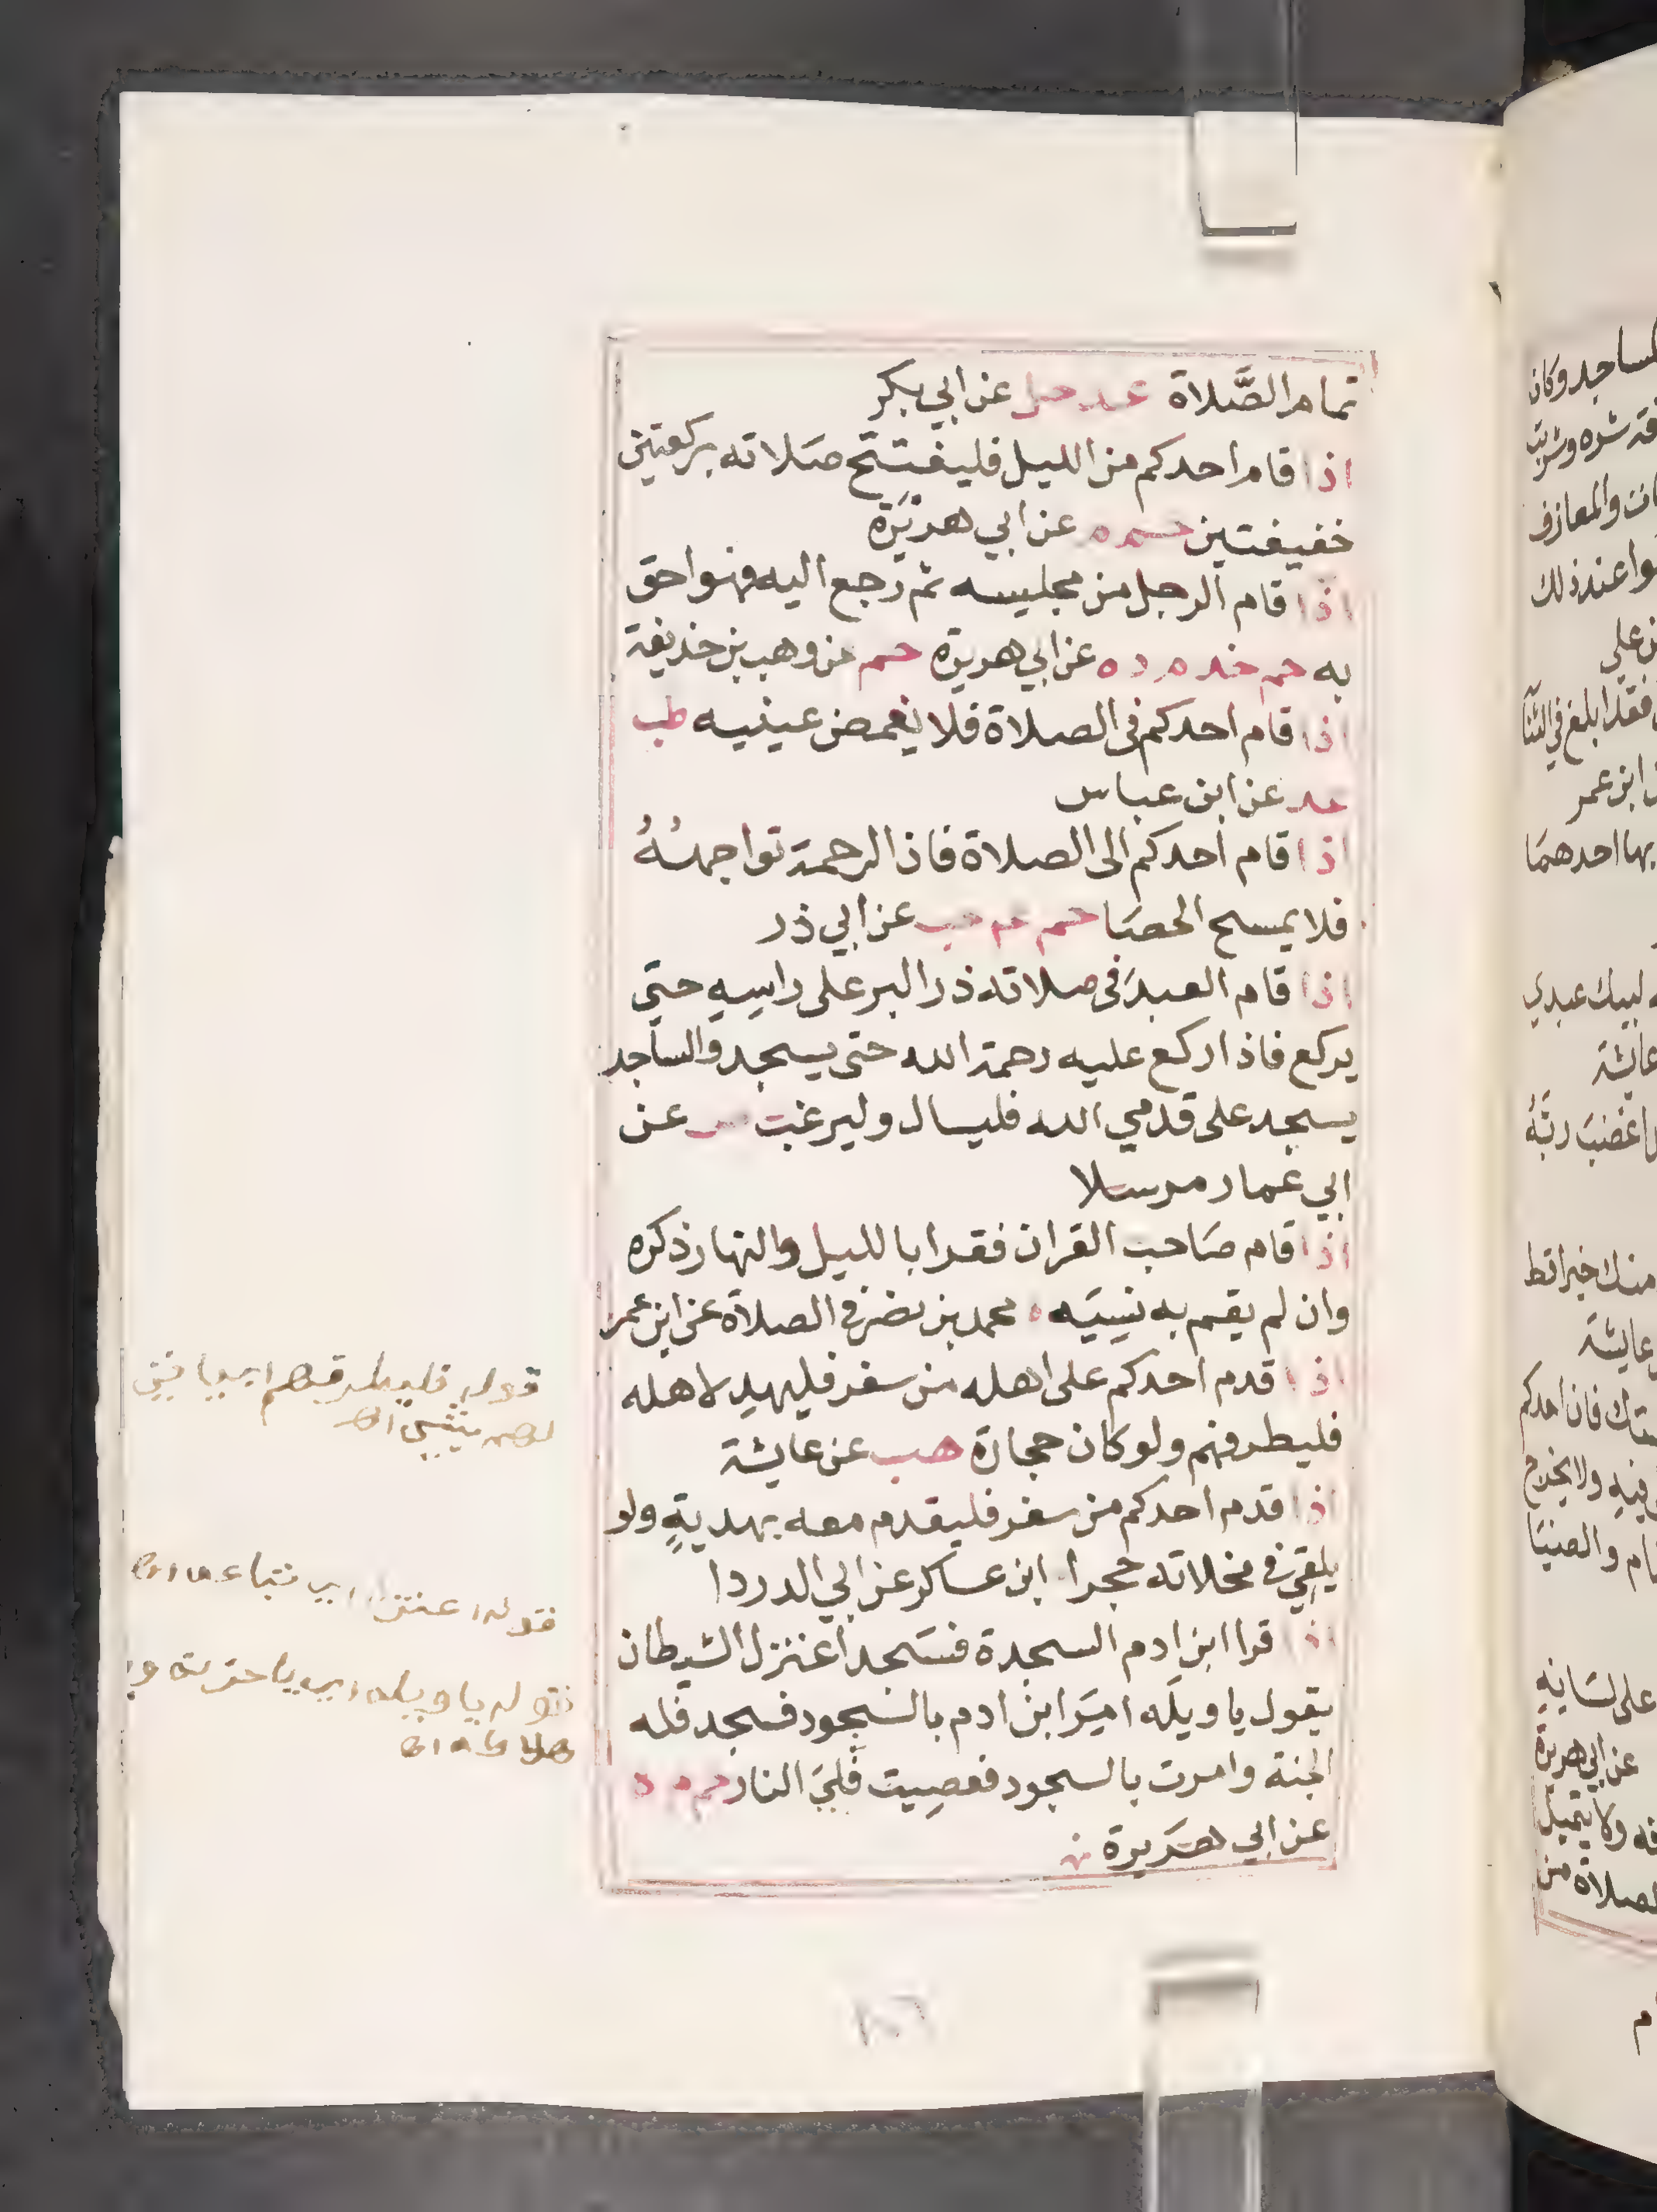 تمام الصَّلاة عد حل عن ابي بكر
اذا قام احدكم من الليل فليفتتح صلاته بركعتين
خفيفتين حم م عن ابي هريرة
اذا قام الرجل من مجلسه ثم رجع اليه فهو احق
به حم خد م د ه عن ابي هريرة حم عن وهب بن حذيفة
اذا قام احدكم في الصلاة فلا يغمض عينيه طب
عد عن ابن عباس
اذا قام احدكم الى الصلاة فان الرحمة تواجهُهُ
فلا يمسح الحصَا حم حب عن ابي ذر
اذا قام العبد في صلاته ذر البر على راسِهِ حتى
يركع فاذا ركع عليه رحمة الله حتى يسجد والساجد
يسجد على قدمي الله فليسال وليرغب ص عن
ابي عمار مرسلا
اذا قام صَاحب القران فقرا بالليل والنهار ذكره
وان لم يقم به نسِيَه محمد بن نضر في الصلاة عن ابن عمر
اذا قدم احدكم على اهله من سفر فليهد لاهله
فليطرفهم ولو كان حجارة هب عن عايشة
اذا قدم احدكم من سفر فليقدم معه بهديةٍ ولو
يلقي في مخلاته حجرا ابن عساكر عن ابي الدردا
اذا قرا ابن ادم السجدة فسَجد اعتزل الشيطان
يقول يا ويلَه امِرَ ابن ادم بالسجود فسجد فله
الجنة وامرت بالسجود فعصيت فليَ النار حم م ه
عن ابي هريرة
قوله فليطرفهم اي ياتي
لهم بشي اهـ
قوله اعتزل اي تباعد اهـ
قوله يا ويله اي يا حزنه ويا
هلاكه اهـ